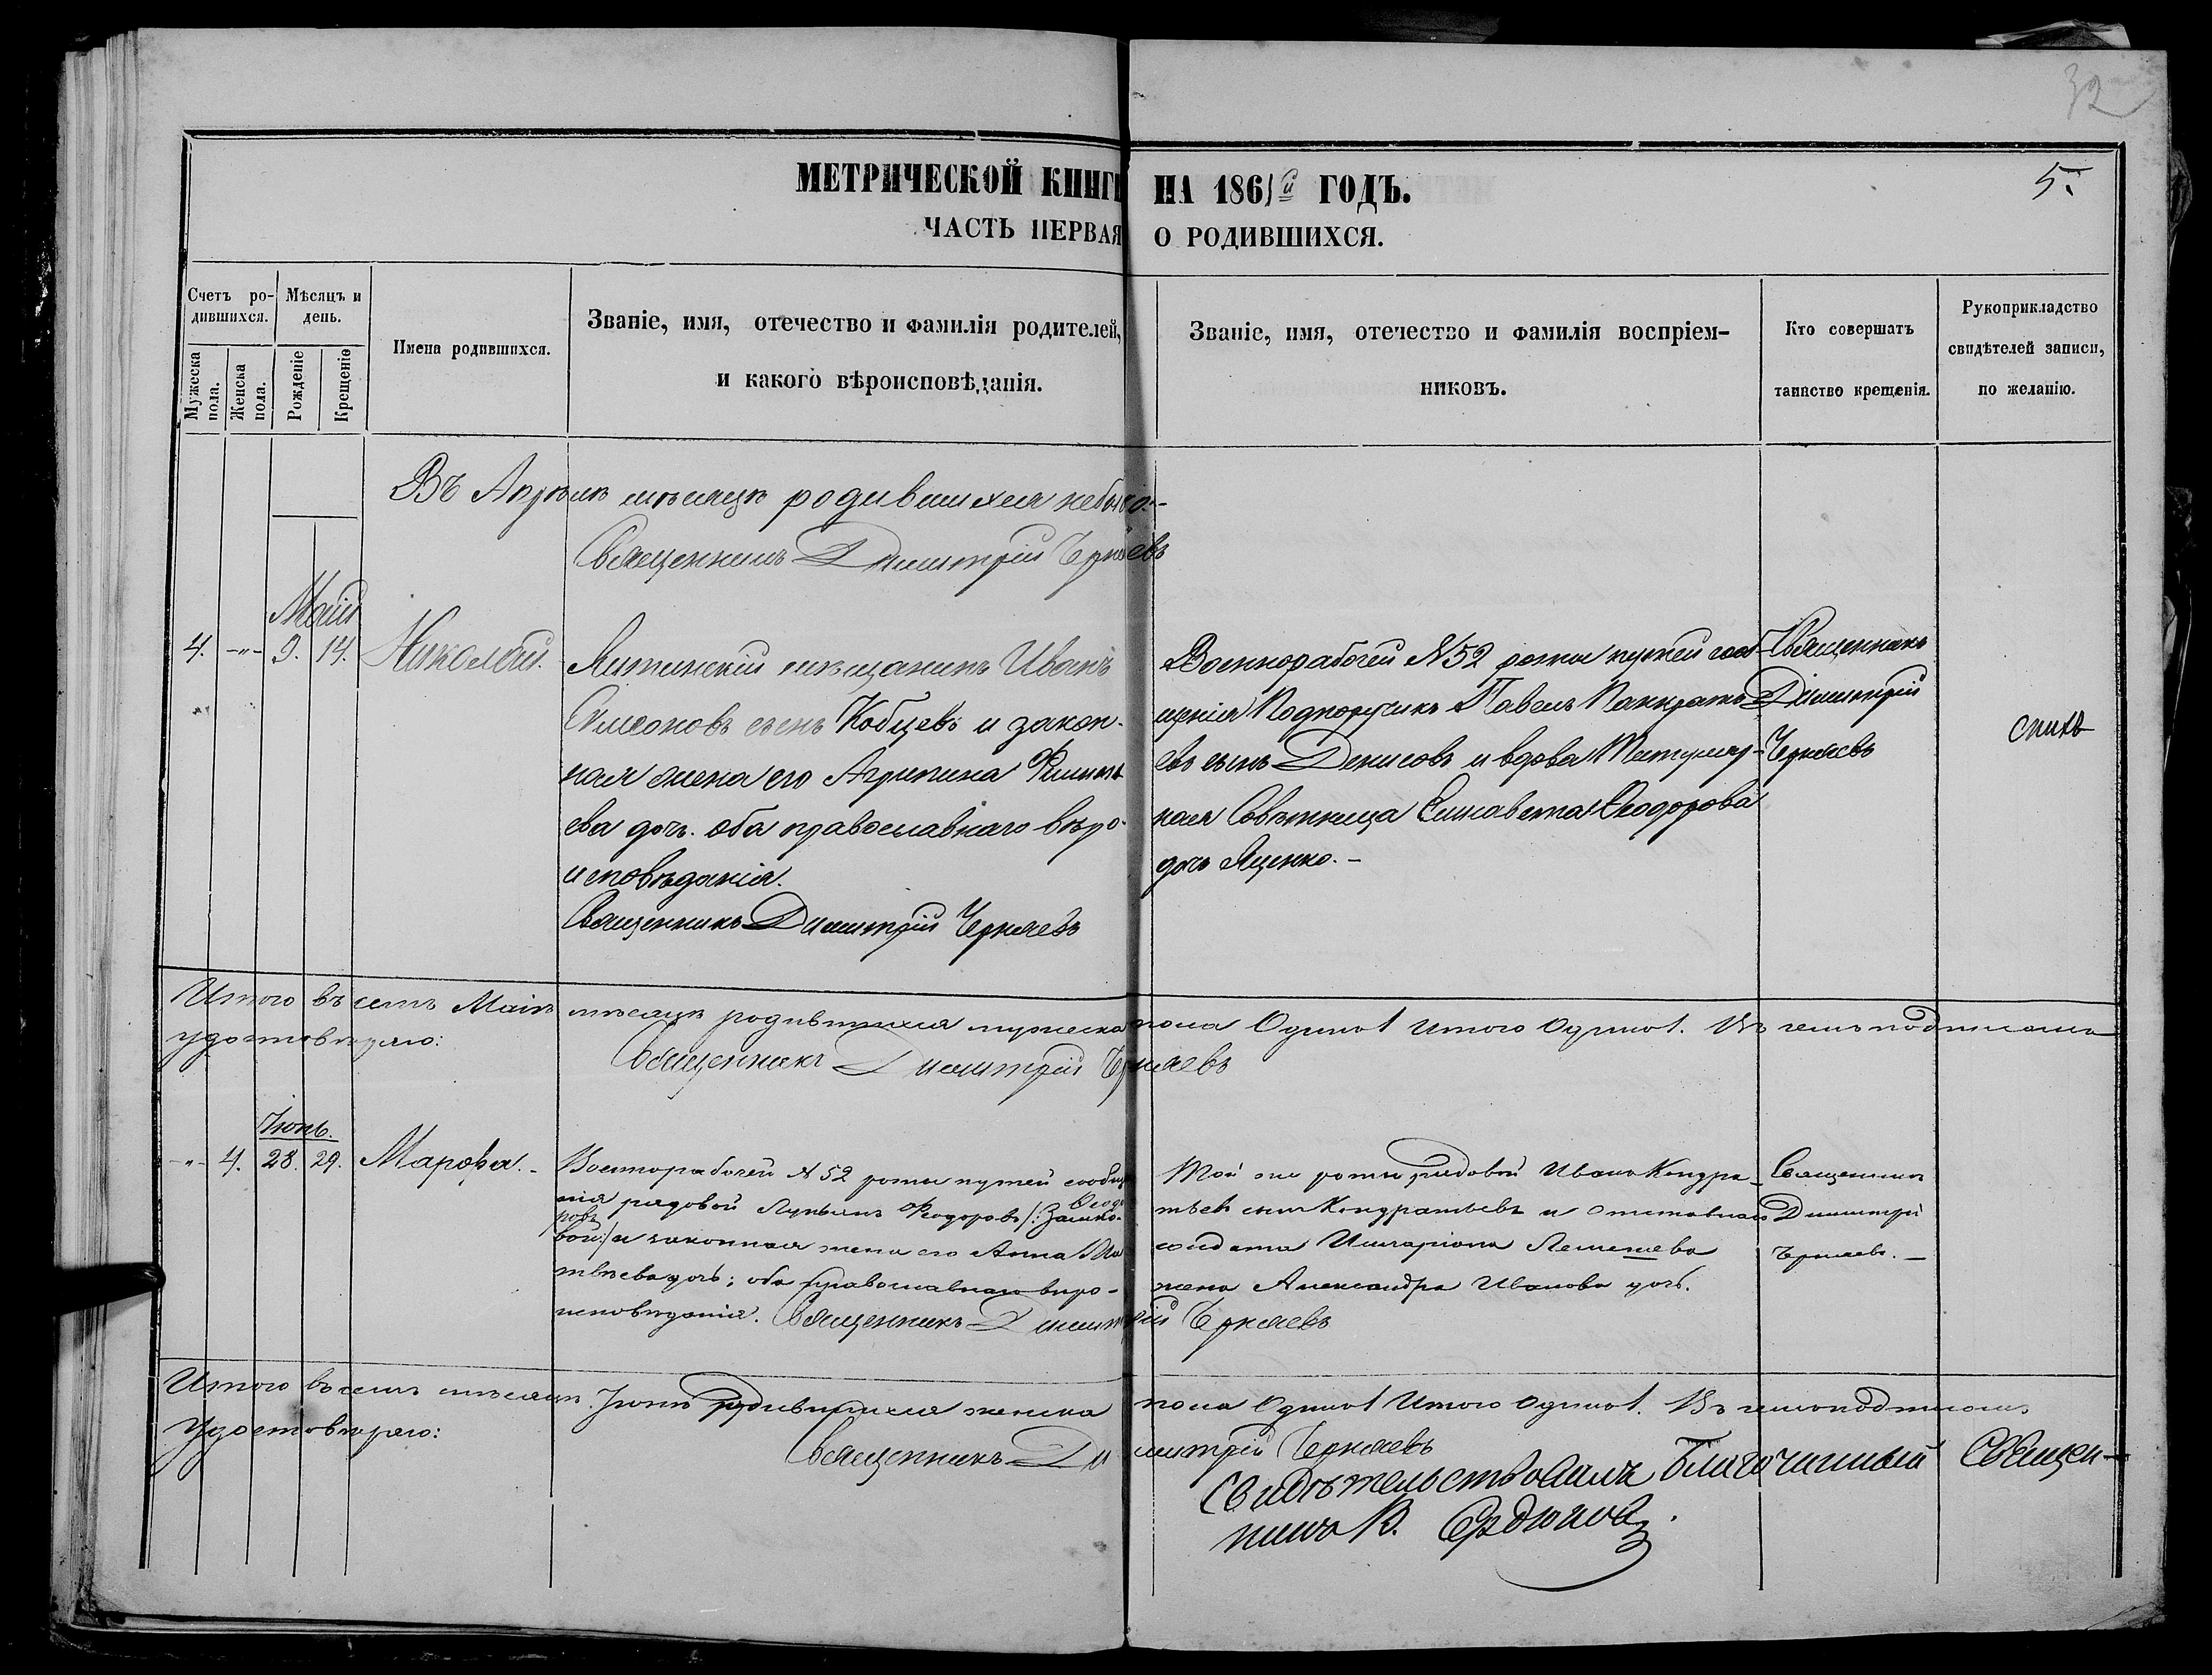 32
МЕТРИЧЕСКОЙ КНИГИ НА 1861й ГОДЪ.
5.
ЧАСТЬ ПЕРВАЯ О РОДИВШИХСЯ.
Счетъ ро-
дившихся.
Мужеска пола.
Женска пола.
Мѣсяцъ и
день.
Рожденіе
Крещеніе
Имена родившихся.
Званіе, имя, отечество и фамилія родителей,
и какого вѣроисповѣданія.
Званіе, имя, отечество и фамилія воспріем-
никовъ.
Кто совершатъ
таинство крещенія.
Рукоприкладство
свидѣтелей записи,
по желанію.
Въ Апрѣлѣ мѣсяцѣ родившихся небыло.-
Священникъ Димитрій Черняевъ
Маій
4. -"- 9. 14. Николай.
мѣщанинъ Иванъ
Симеоновъ сынъ Кобцевъ и закон-
ная жена его Агрипина
ева доч. оба православнаго вѣро-
исповѣданія.
Священникъ Димитрій Черняевъ
Военнорабочей N52 роты путей сооб-
щенія Подпоручикъ Павелъ Панкрать
евъ сынъ Денисовъ и вдова Титуляр-
ная Совѣтница Елисавета Ѳеодорова
дочь Яценко.-
Священникъ
Димитрій
Черняевъ
Итого въ семъ Маіѣ мѣсяцѣ родившихся мужеска пола Одинъ 1 Итого Одинъ 1. Въ чемъ подписомъ
удостовѣряю:
Священникъ Димитрій Черняевъ
Іюнь.
-"- 4. 28. 29. Марѳа.-
Военнорабочей N52 роты путей сообще
нія рядовой Лукьянъ Ѳеодоровъ
вой:/ и законная жена его Анна Ма
твѣева дочь; оба православнаго вѣро-
исповѣданія. Священникъ Димитрій Черняевъ
Той же роты рядовой Иванъ Кондра-
тьевъ сынъ Кондратьевъ и отставнаго
солдата Иларіона
жена Александра Иванова дочь.
Священникъ
Димитрій
Черняевъ.-
Итого въ семъ мѣсяцѣ Іюнѣ родившихся женска пола Одинъ 1 Итого Одинъ 1. Въ чемъ подписомъ
удостовѣряю:
Священникъ Димитрій Черняевъ
Свидѣтельствовалъ Благочинный Священ-
никъ В.